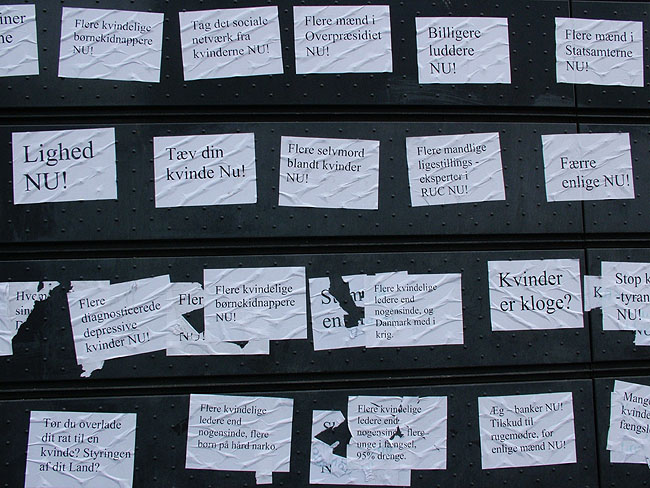 Flere kvindelige
børnekidnappere
NU!
Tag det sociale
netværk fra
kvinderne NU!
Flere mænd i
Overpræsidiet
NU!
Billigere
luddere
NU!
Flere mænd i
Statsamterne
NU!
Lighed
NU!
Tæv din
kvinde Nu!
Flere selvmord
blandt kvinder
NU!
Flere mandlige
ligestillings -
eksperter i
RUC NU!
Færre
enlige NU!
Flere
diagnosticerede
depressive
kvinder NU!
Fler
NU!
Flere kvindelige
børnekidnappere
NU!
Flere kvindelige
ledere end
nogensinde, og
Danmark med i
krig.
Kvinder
er kloge?
K
Stop k
-tyran
NU!
Tør du overlade
dit rat til en
kvinde? Styringen
af dit Land?
Flere kvindelige
ledere end
nogensinde, flere
børn på hård narko.
Flere kvindelige
ledere end
nogensinde, flere
unge i fængsel,
95% drenge.
Æg – banker NU!
Tilskud til
rugemødre, for
enlige mænd NU!
Mange
kvinde
fængsl